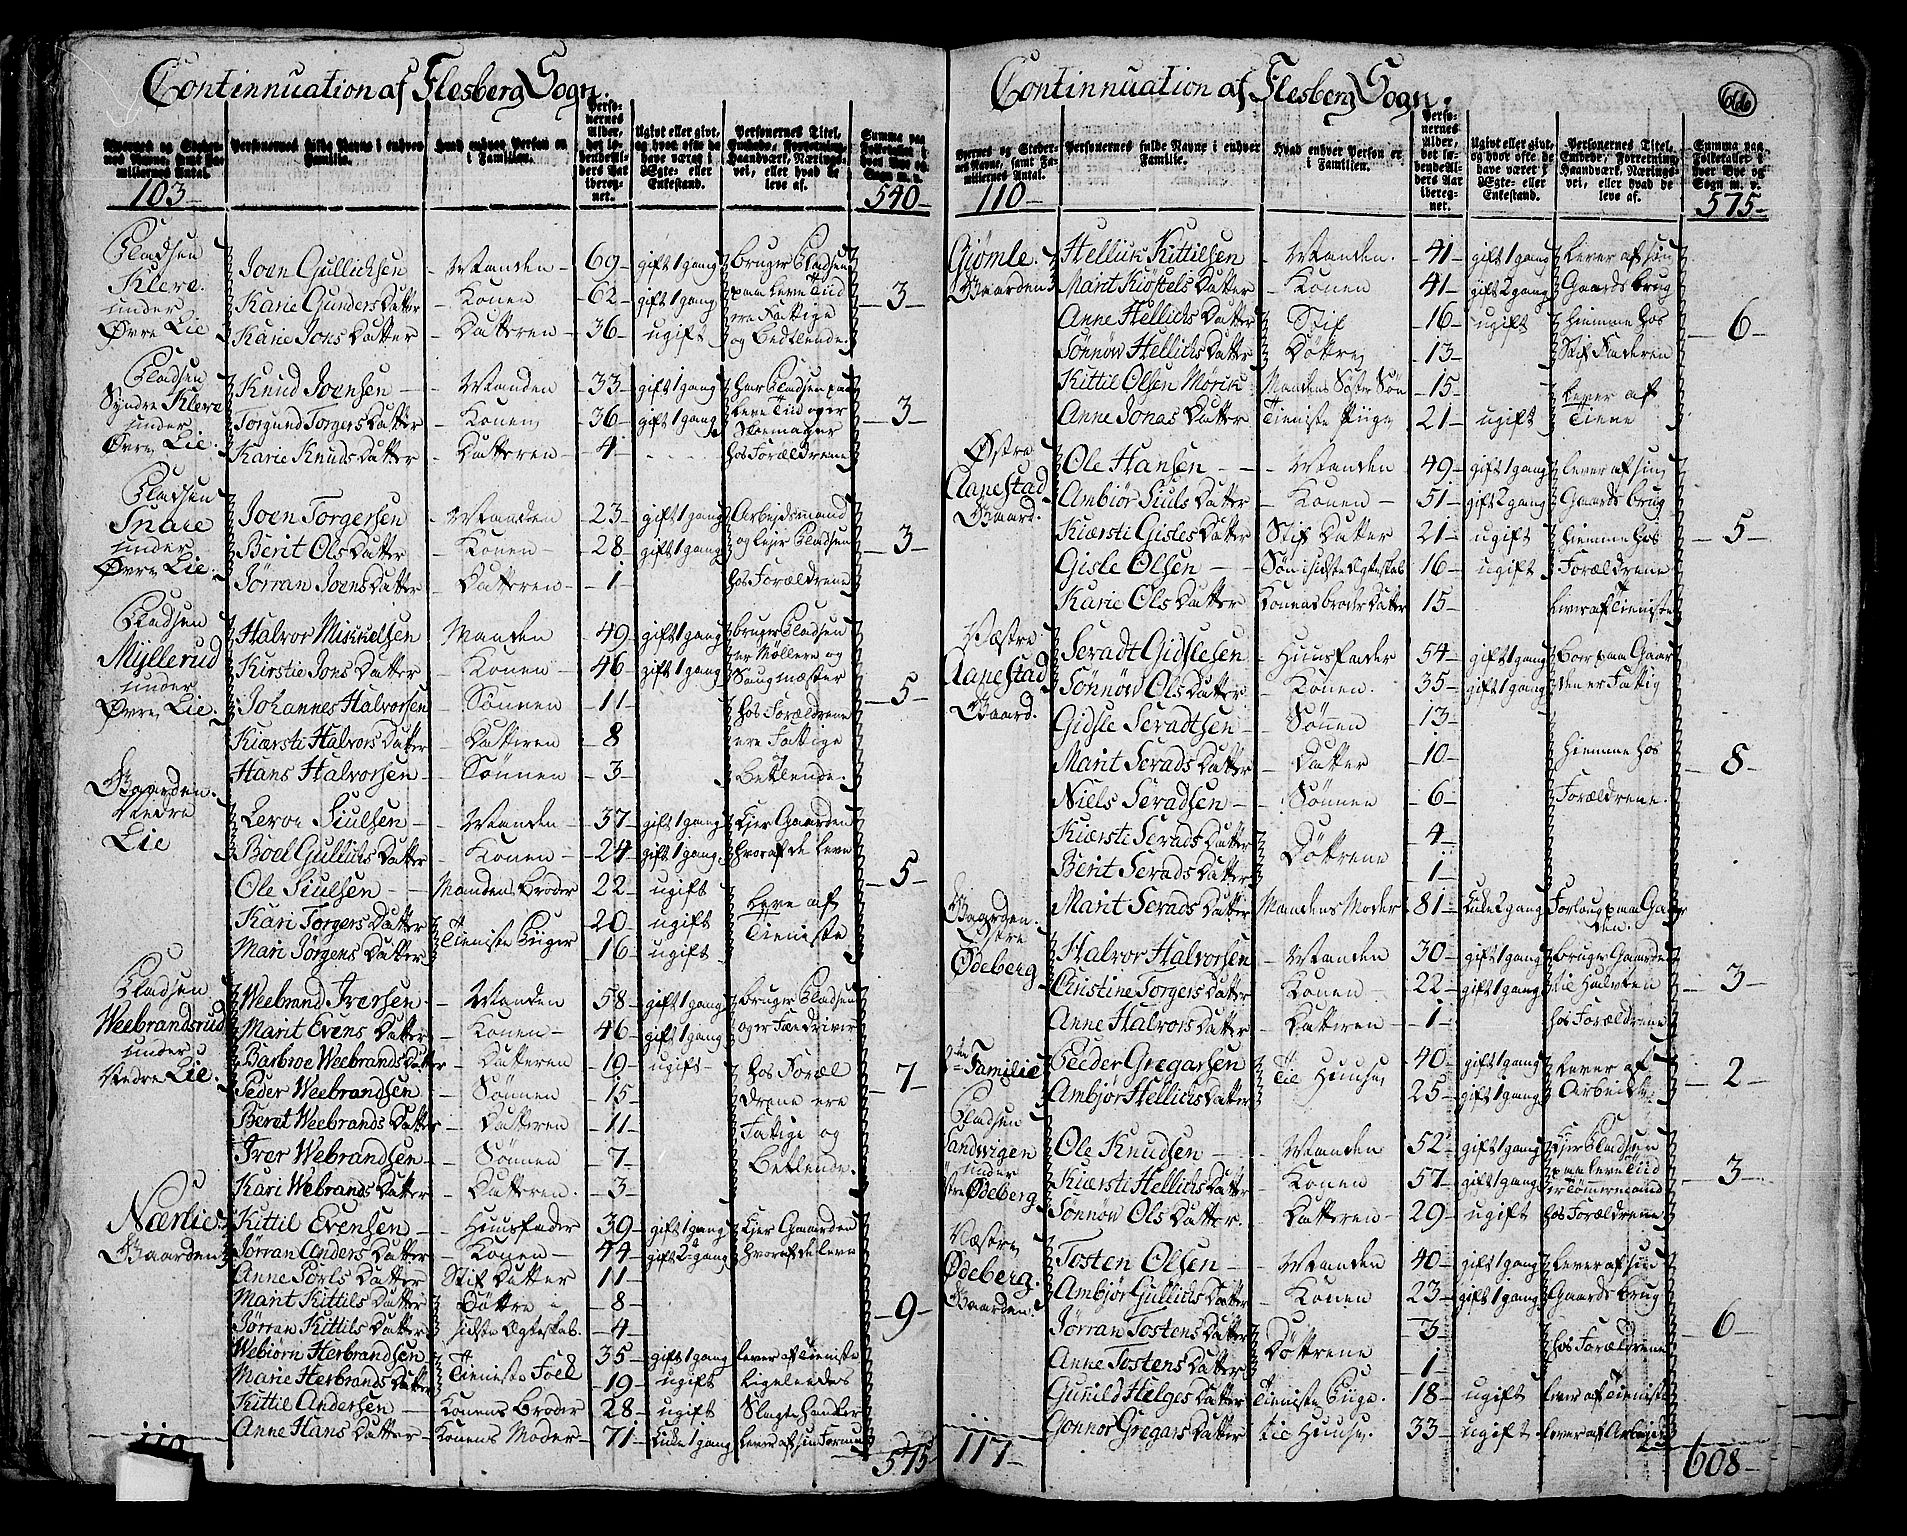 Continnuation af Flesberg Sogn.
Personernes fulde Navne i enhver Familie.
Hvad enhver Person er i Familien.
Personernes Alder, det løbendeAlders Aar iberegnet.
Ugivt eller givt, og hvor ofte de have været i Ægte- eller Enkestand.
Personernes Titel, Embede, Forretning, Haandværk, Næringsvei, eller hvad de leve af.
Summa paa Folketallet i hver Bye og Sogn m. v.
103 540
Pladsen Klere under Øvre Lie
Joen Gullichsen Manden 69 gift 1 gang bruger Pladsen
Karie Gunders Datter Konen 62 gift 1 gang paa leve Tiid 3
Karie Jons Datter Datteren 36 ugift ere Fattige og Betlende.
Pladsen Syndre Klere under Øvre Lie
Knud Joensen Manden 33 gift 1 gang har Pladsen paa
Torgund Torgers Datter Konen 36 gift 1 gang leve Tiid og er Skomager 3
Karie Knuds Datter Datteren 4 hos Forældrene
Pladsen Snare under Øvre Lie.
Joen Torgersen Manden 23 gift 1 gang Arbejdsmand
Berit Ols Datter Konen 28 gift 1 gang og lejer Pladsen 3
Jørran Joens Datter Datteren 1 hos Forældrene
Pladsen Myllerud under Øvre Lie.
Halvor Mikkelsen Manden 49 gift 1 gang bruger Pladsen
Kirstie Jons Datter Konen 46 gift 1 gang er Møllere og Saugmæster
Johannes Halvorsen Sønnen 11 hos Forældrene 5
Kiersti Halvors Datter Datteren 8 ere Fattige
Hans Halvorsen Sønnen 3 Betlende.
Gaarden Nedre Lie
Leroe Siulsen Manden 37 gift 1 gang Ejer Gaarden
Boel Gullichs Datter Konen 24 gift 1 gang hvoraf de leve
Ole Siulsen Mandens Broder 22 ugift 5
Kari Torgers Datter Tieniste Piiger 20 ugift leve af
Mari Jørgens Datter 16 ugift Tieniste
Pladsen Weebrandsrud under Nedre Lie.
Weebrand Iversen Manden 58 gift 1 gang bruger Pladsen
Marit Evens Datter Konen 46 gift 1 gang
Barbroe Weebrands Datter Datteren 19 ugift hos Foræl
Peder Weebrandsen Sønnen 15 drene ere 7
Beret Weebrands Datter Datteren 11 Fattige og
Iver Webrandsen Sønnen 7 Betlende.
Kari Webrands Datter Datteren 3
Nærlie Gaarden
Kittil Evensen Huusfader 39 gift 1 gang Ejer Gaarden
Jørran Anders Datter Konen 44 gift 2 gang hvoraf de leve
Anne Porls Datter Stif Datter 11
Marit Kittils Datter Døttre i 8
Jørran Kittils Datter sidste Ægteskab. 4 9
Webiørn Herbrandsen Tieniste Folk 35 gift 1 gang lever af Tieniste
Marie Herbrands Datter 19 ugift ligeledes
Kittil Andersen Konens Broder 28 ugift
Anne Hans Datter Konens Moder 71 Enke 1 gang
110 575
Continnuation af Flesberg Sogn.
Personernes fulde Navne i enhver Familie.
Hvad enhver Person er i Familien.
Personernes Alder, det løbendeAlders Aar iberegnet.
Ugivt eller givt, og hvor ofte de have været i Ægte- eller Enkestand.
Personernes Titel, Embede, Forretning, Haandværk, Næringsvei, eller hvad de leve af.
Summa paa Folketallet i hver Bye og Sogn m. v.
110 575
Gjømle Gaarden
Helluk Kittilsen Manden. 41 gift 1 gang lever af sin
Marit Kiøstels Datter Konen 41 gift 2 gang Gaards brug
Anne Hellichs Datter Stif 16 ugift hiemme hos 6
Sønnøw Hellichs Datter Døttre 13 Stif Faderen
Kittil Olsen Mørik Mandens Søster Søn 15 lever af
Anne Jonas Datter Tieniste Piige 21 ugift Tiene
Østre Aanestad Gaard.
Ole Hansen Manden 49 gift 1 gang lever af sin
Ambiør Siuls Datter Konen 51 gift 2 gang Gaards brug
Kiersti Gisles Datter Stif Datter 21 ugift hiemme hos 5
Gisle Olsen Søn i sidste Ægteskab 16 ugift Forældrene
Karie Ols Datter Konens broder Datter 15 lever af Tieniste
Væstre Aanestad Gaard.
Seradt Gidslesen Huusfader 54 gift 1 gang boer paa Gaar
Sønnøw Ols Datter Konen. 35 gift 1 gang den er Fattig
Gidsle Seradtsen Sønnen 13
Marit Serads Datter Datter 10 hiemme hos 8
Niels Seradsen Sønnen 6 Forældrene.
Kiersti Serads Datter Døttrene 4
Berit Serads Datter 1
Marit Serads Datter Mandens Moder 81 Enke 2 gang
Gaarden Østre Ødeberg
Halvor Halvorsen Manden 30 gift 1 gang bruger Gaarden
Christine Torgers Datter Konen 22 gift 1 gang til Halvten 3
Anne Halvors Datter Datteren 1 hos Forældrene
2den Familie
Peeder Gregarsen Til Huuse 40 gift 1 gang lever af 2
Ambjør Hellichs Datter 25 gift 1 gang Arbeide
Pladsen Sandwigen under Østre Ødeberg
Ole Knudsen Manden 52 gift 1 gang Ejer Pladsen
Kiersti Hellichs Datter Konen 57 gift 1 gang paa leve Tiid er Tømmermand 3
Sønnøw Ols Datter. Datteren 29 ugift hos Forældrene
Væstre Ødeberg. Gaarden.
Tosten Olsen Manden 40 gift 1 gang lever af sin
Ambjør Gullichs Datter Konen 23 gift 1 gang Gaards brug
Jørran Tostens Datter Døttrene 3 hos Forældrene 6
Anne Tostens Datter 1
Gunild Helges Datter Tieniste Piige. 18 ugift lever af Tieniste
Gonnor Gregars Datter til Huuse. 33 ugift lever af Arbejde
117 608